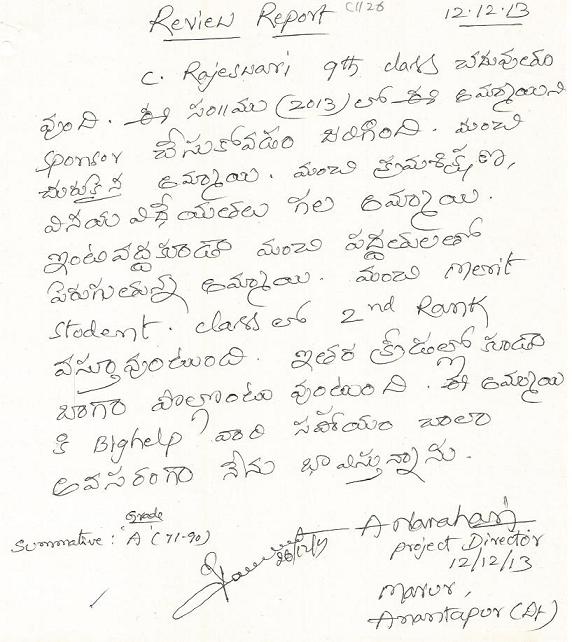 Review Report C1128 12.12.13
C. Rajeswari 9th class చదువుతూ
వుంది. ఈ సం॥ము (2013) లో ఈ అమ్మాయిని
sponsor చేసుకోవడం జరిగింది. మంచి
చురుకైన అమ్మాయి. మంచి క్రమశిక్షణ,
వినయ విధేయతలు గల అమ్మాయి.
ఇంటి వద్ద కూడా మంచి పద్ధతులతో
పెరుగుతున్న అమ్మాయి. మంచి merit
student. class లో 2nd Rank
వస్తూవుంటుంది. ఇతర క్రీడల్లో కూడా
బాగా పాల్గొంటు వుంటుంది. ఈ అమ్మాయి
కి Bighelp వారి సహాయం చాలా
అవసరంగా నేను భావిస్తున్నాను.
Grade
Summative : 'A' (71-90)
A Narahari
Project Director
12/12/13
Marur,
Anantapur (Dt)